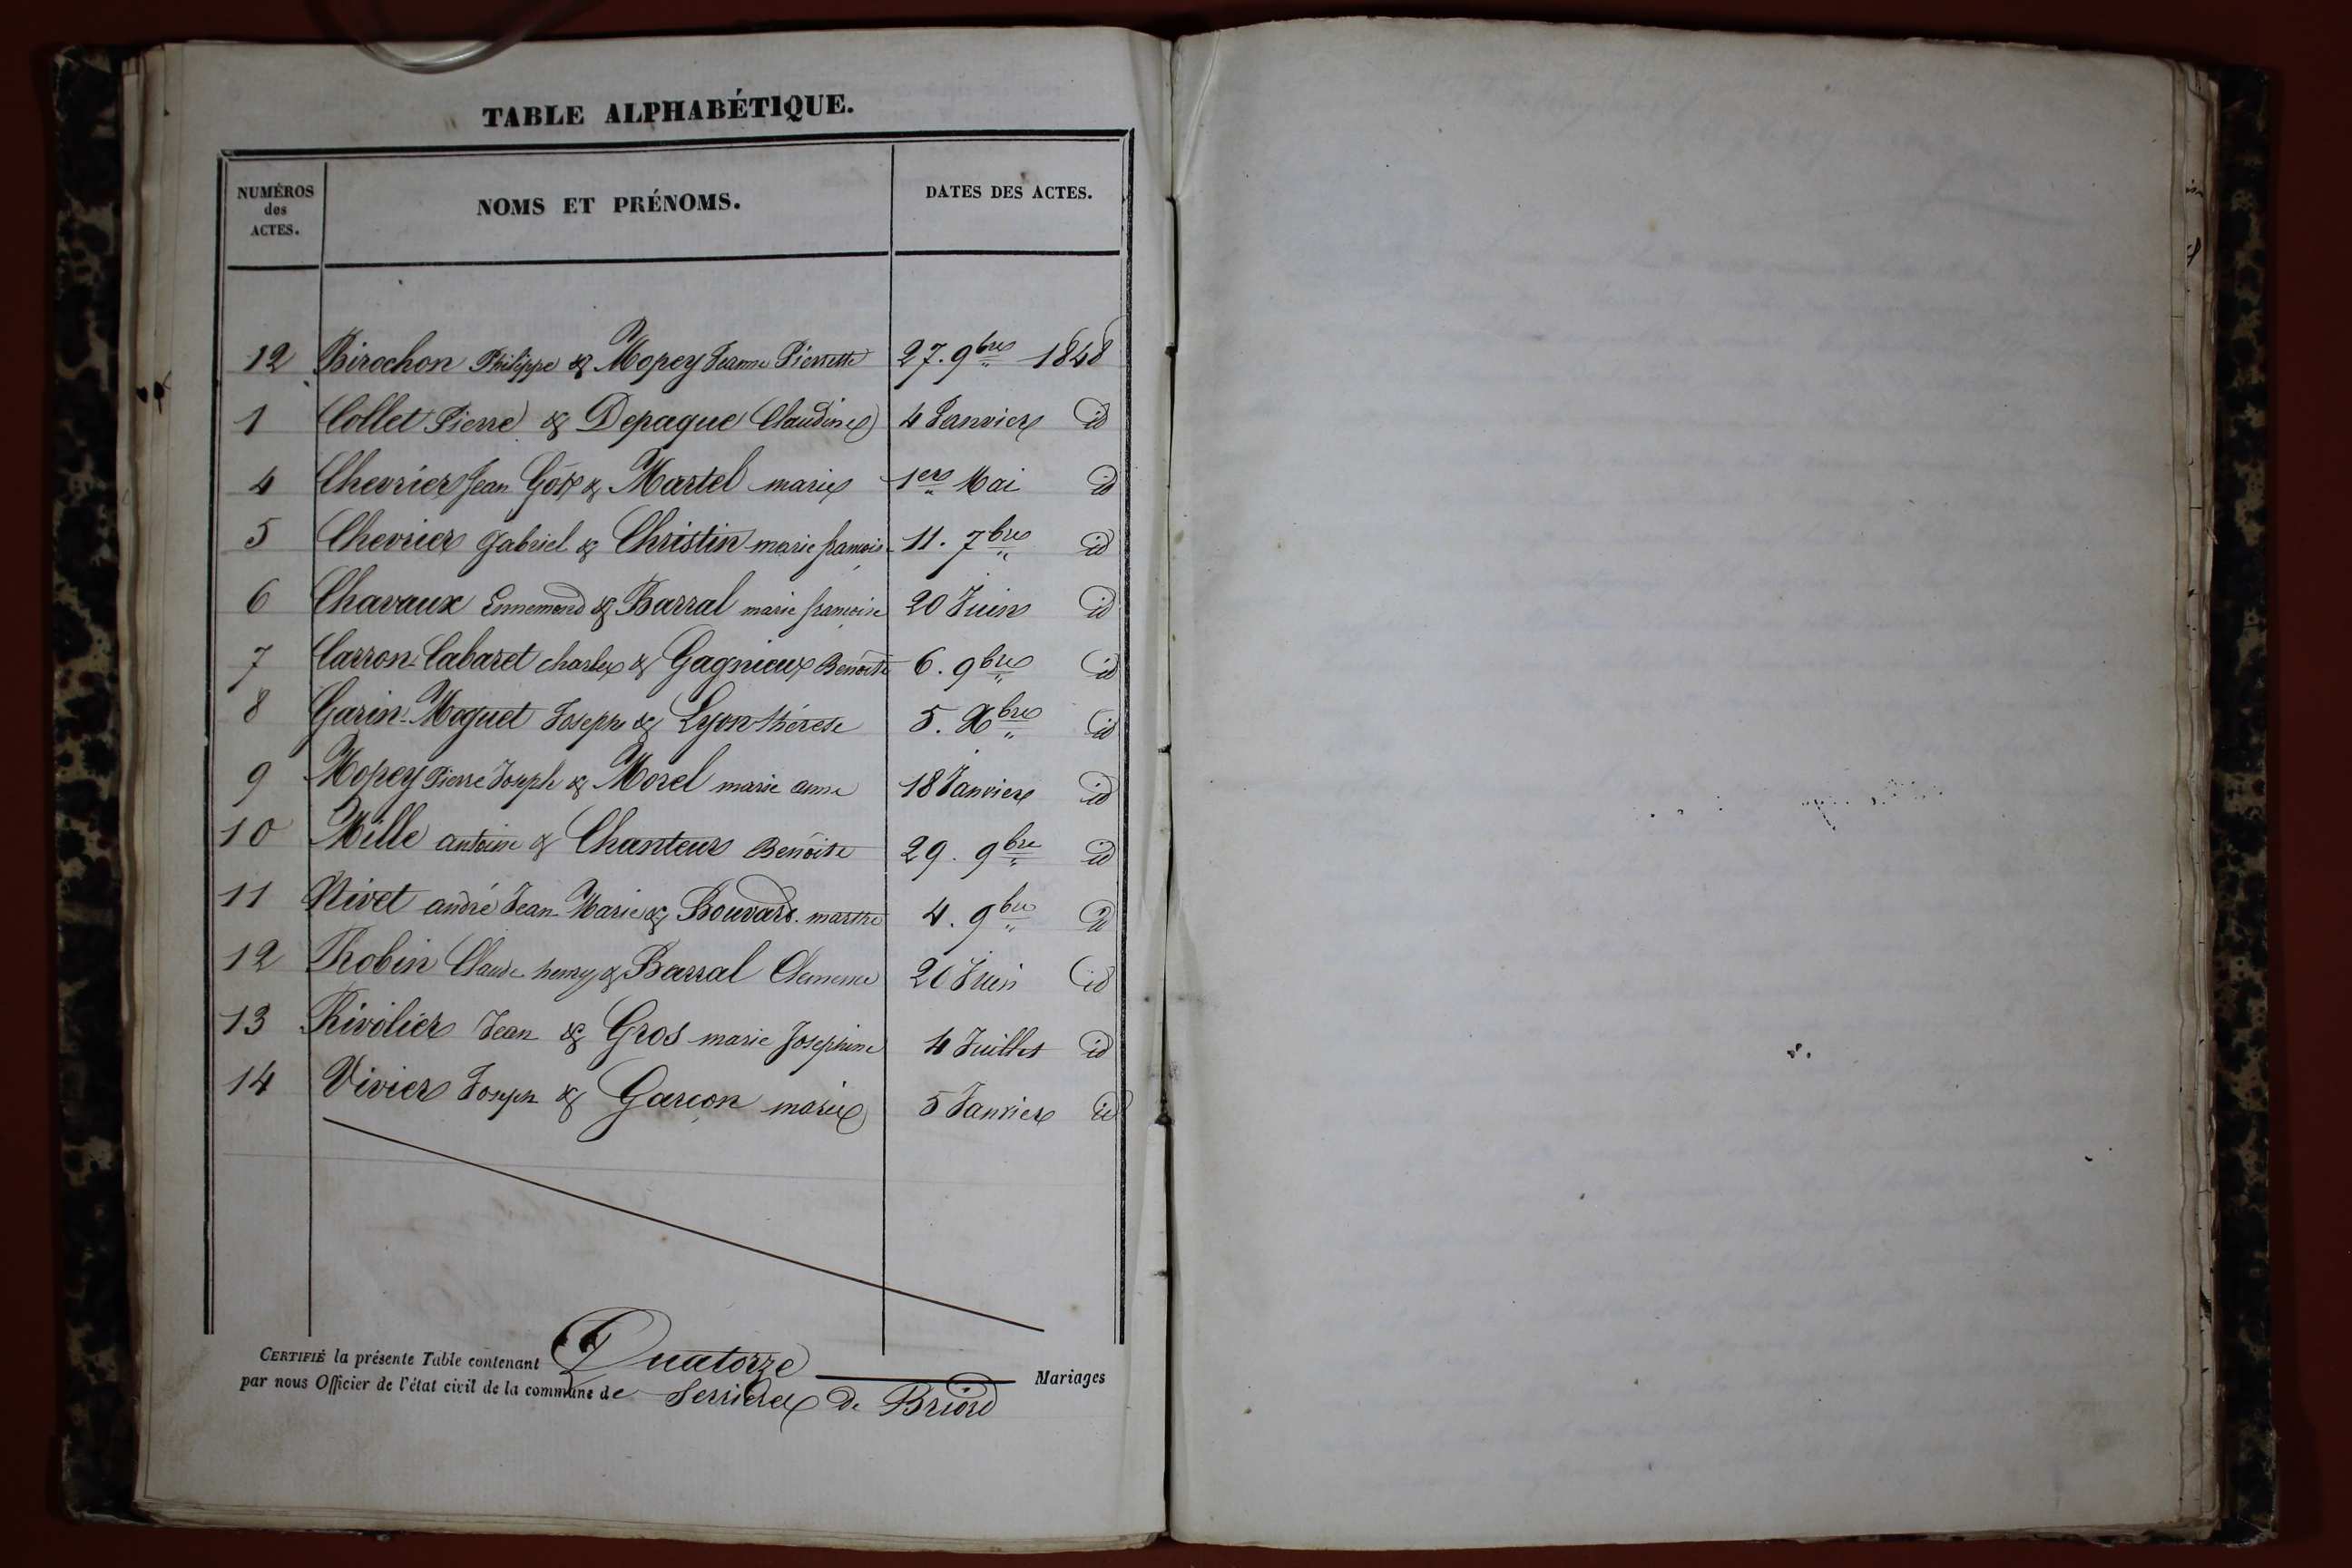 TABLE ALPHABÉTIQUE.
NUMÉROS des ACTES. NOMS ET PRÉNOMS. DATES DES ACTES.
12 Birochon Philippe & Mopey Jeanne Pierrette 27. 9bre 1848
1 Collet Pierre & Depague Claudine 4 Janvier id
4 Chevrier Jean & Martel marie 1er Mai id
5 Chevrier Gabriel & Christin marie françoise 11. 7bre id
6 Chavaux Ennemond & Barral marie françoise 20 Juin id
7 Carron-Cabaret charles & Gagnieux Benoite 6. 9bre id
8 Garin-Moguet Joseph & Lyon thérese 5. Xbre id
9 Mopey Pierre Joseph & Morel marie anne 18 Janvier id
10 Mille antoine & Chanteur Benoite 29. 9bre id
11 Nivet andré Jean-Marie & Bouvard marthe 4. 9bre id
12 Robin Claude henry & Barral Clemence 20 Juin id
13 Rivolier Jean & Gros marie Josephine 4 Juillet id
14 Vivier Joseph & Garçon marie 5 Janvier id
CERTIFIÉ la présente Table contenant Quatorze Mariages
par nous Officier de l'état civil de la commune de Serrieres de Briord